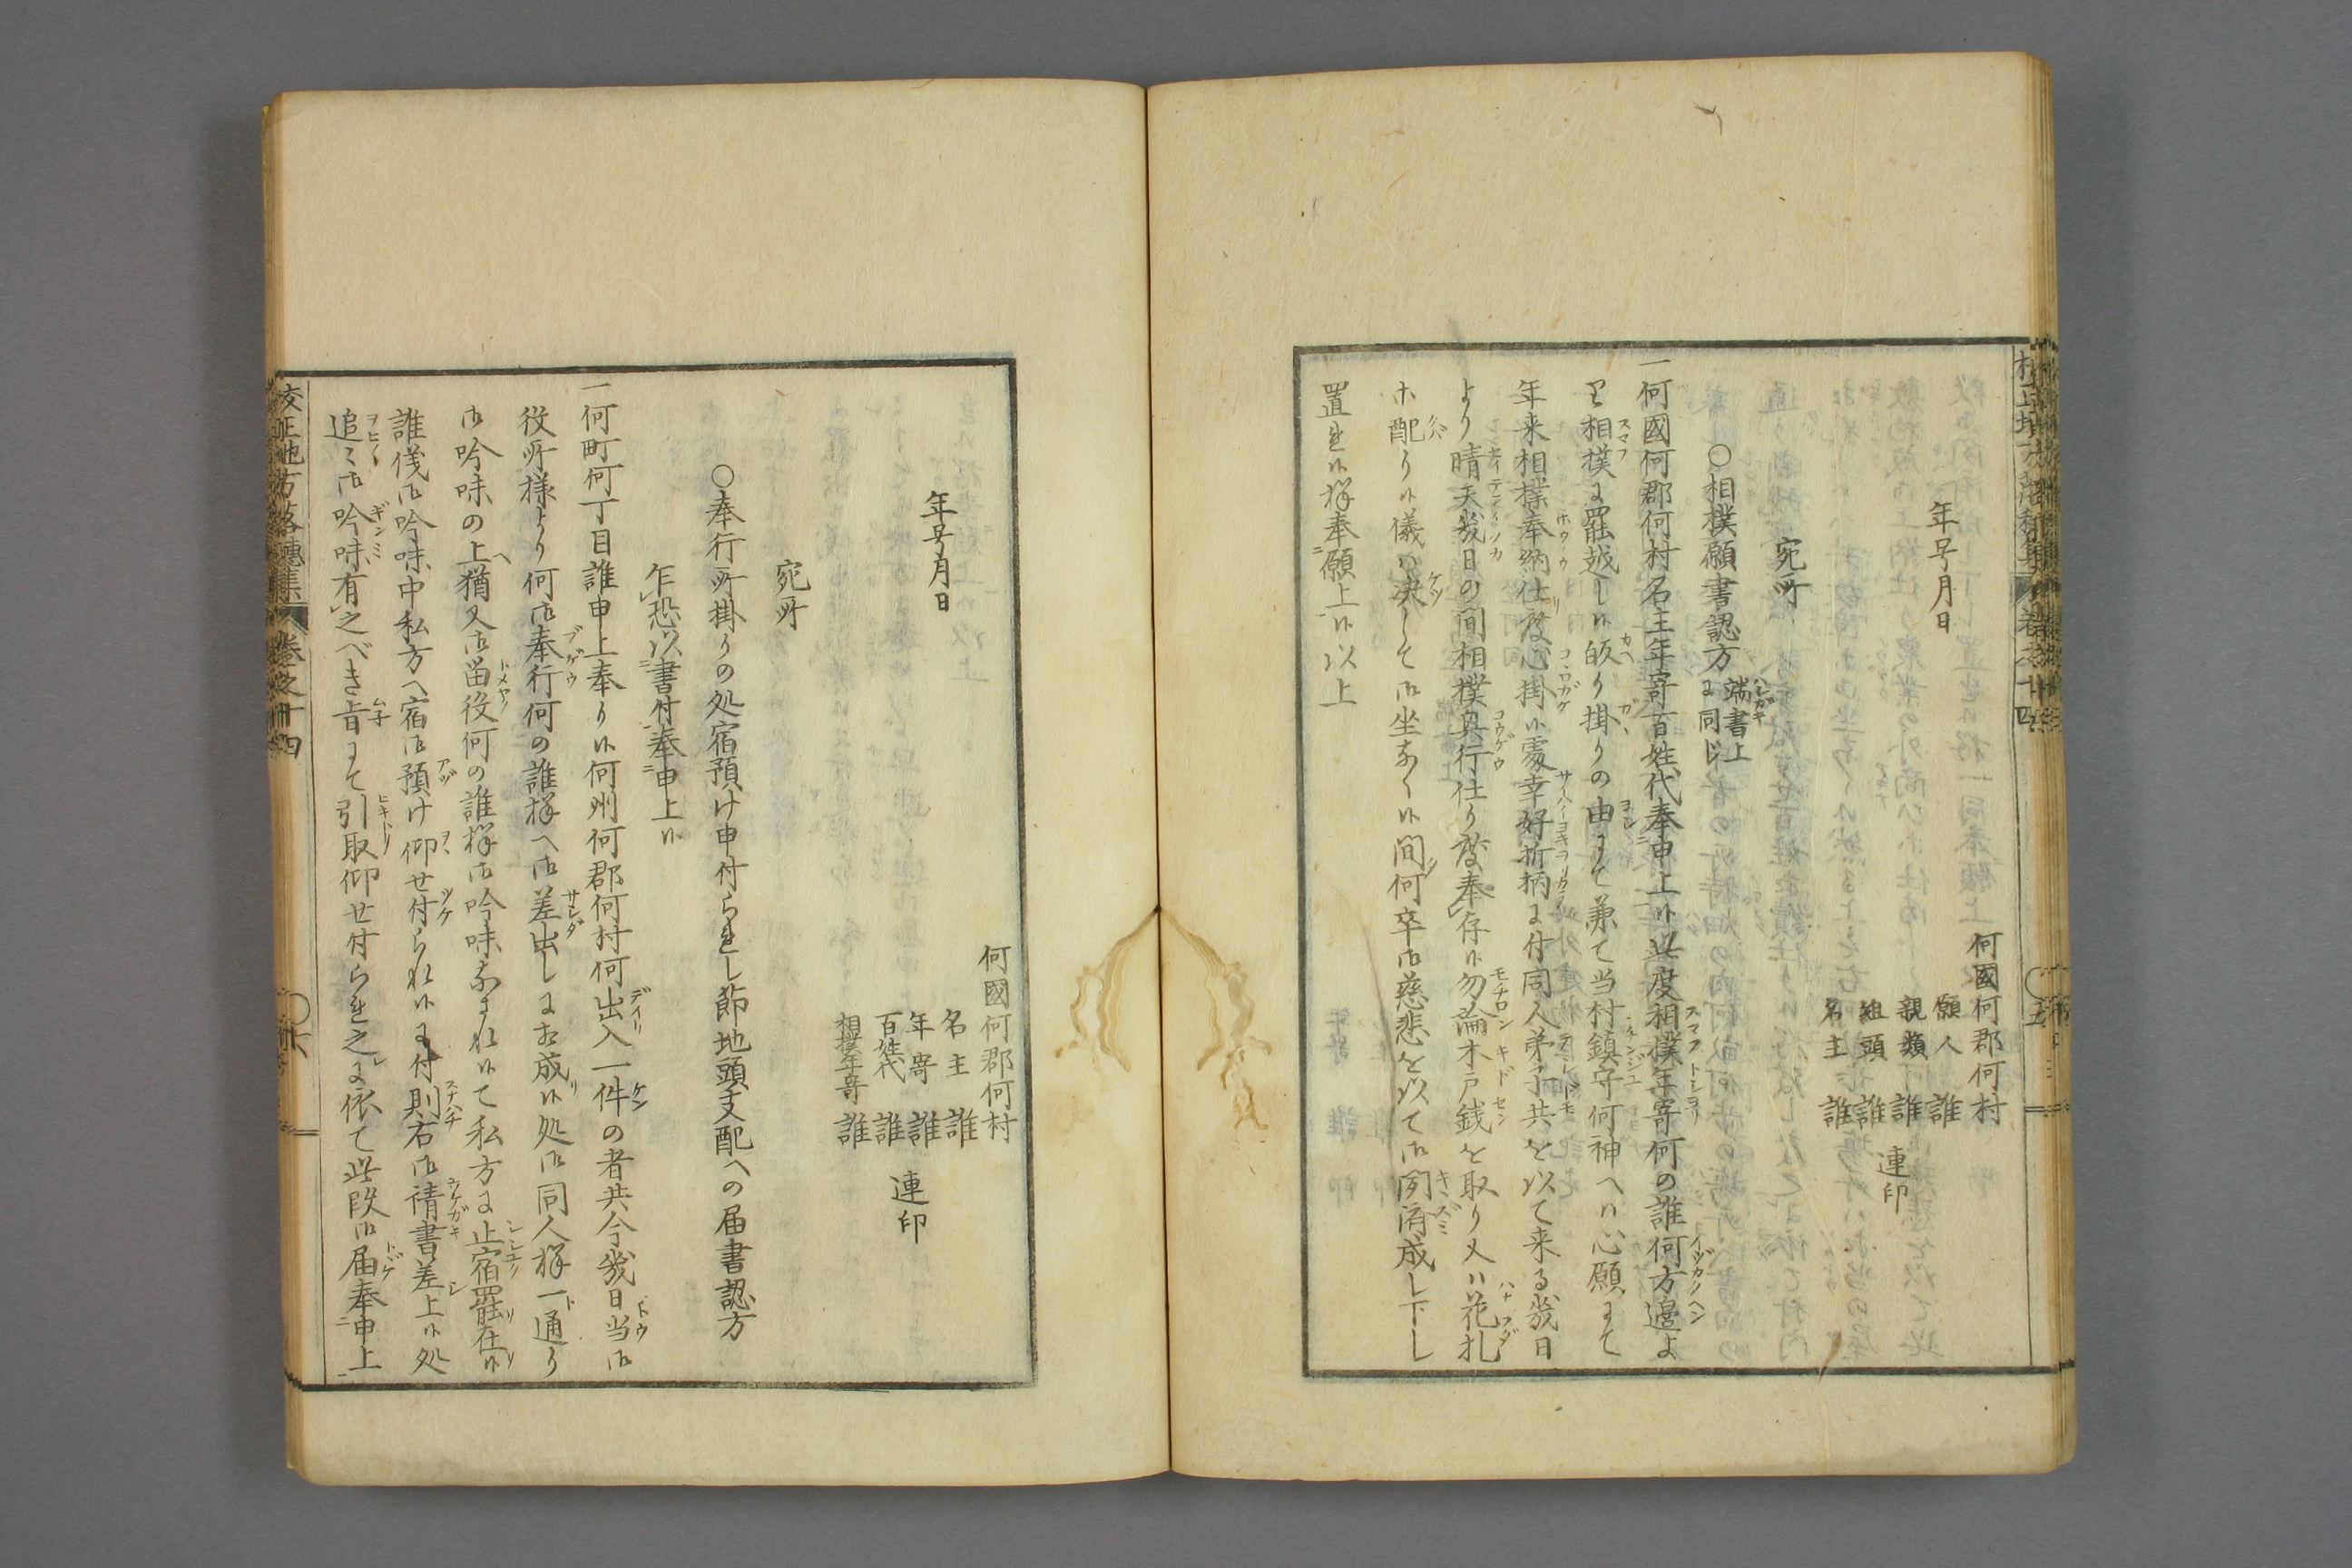 何國何郡何村
年号月日
願人 誰
親類 誰
組頭 誰
名主 誰
連印
宛所
○相撲願書認方 端書上に同じ
一何國何郡何村名主年寄百姓代奉申上候此度相撲年寄何の誰何方邉よ
り相撲に罷越し候皈り掛りの由にて兼て当村鎮守何神へハ心願にて
年来相撲奉納仕度心掛候處幸好折柄に付同人弟子共を以て来る幾日
より晴天幾日の間相撲興行仕り度奉存候勿論木戸銭を取り又ハ花札
ホ配り候儀ハ決して御坐なく候間何卒御慈悲を以て御聞済成し下し
置れ候様奉願上候以上
何國何郡何村
年号月日
名主 誰
年寄 誰
百姓代 誰
相撲年寄 誰
連印
宛所
○奉行所掛りの処宿預け申付られし節地頭支配への届書認方
乍恐以書付奉申上候
一何町何丁目誰申上奉り候何州何郡何村何出入一件の者共今幾日当御
役所様より何御奉行何の誰様へ御差出しに相成候処御同人様一通り
御吟味の上猶又御留役何の誰様御吟味なされ候て私方に止宿罷在候
誰儀御吟味中私方へ宿御預け仰せ付られ候に付則右御請書差上候処
追〻御吟味有之べき旨にて引取仰せ付られ之に依て此段御届奉申上
校正地方落穂集 卷之十四